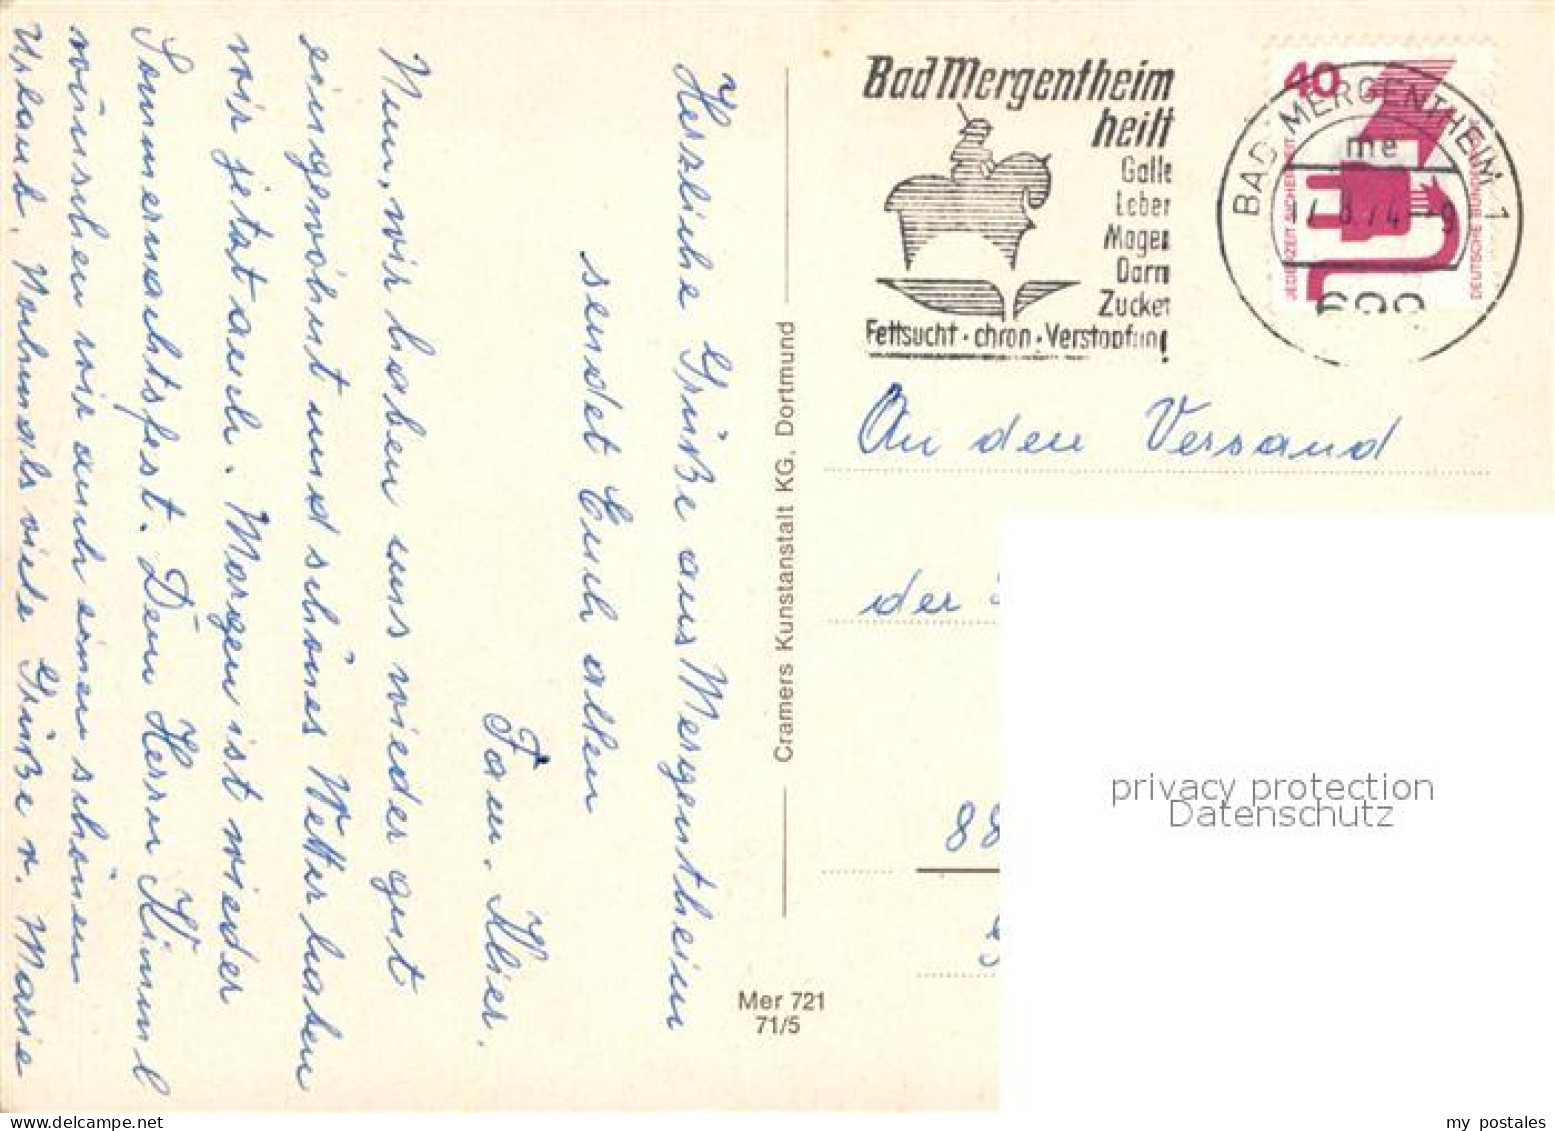 Herzliche Grüße aus Mergentheim
sendet Euch allen
Fam. Klier.
Nun, wir haben uns wieder gut
eingewöhnt und schönes Wetter haben
wir jetzt auch. Morgen ist wieder
Sommernachtsfest. Dem Herrn Kimml
wünschen wir auch einen schönen
Urlaub. Nochmals viele Grüße v. Marie
Cramers Kunstanstalt KG, Dortmund
Mer 721
71/5
Bad Mergentheim
heilt
Galle
Leber
Magen
Darm
Zucker
Fettsucht · chron · Verstopfung
40
JEDERZEIT SICHERHEIT
DEUTSCHE BUNDESPOST
BAD MERGENTHEIM 1
me
An den Versand
der
88
privacy protection
Datenschutz
my postales